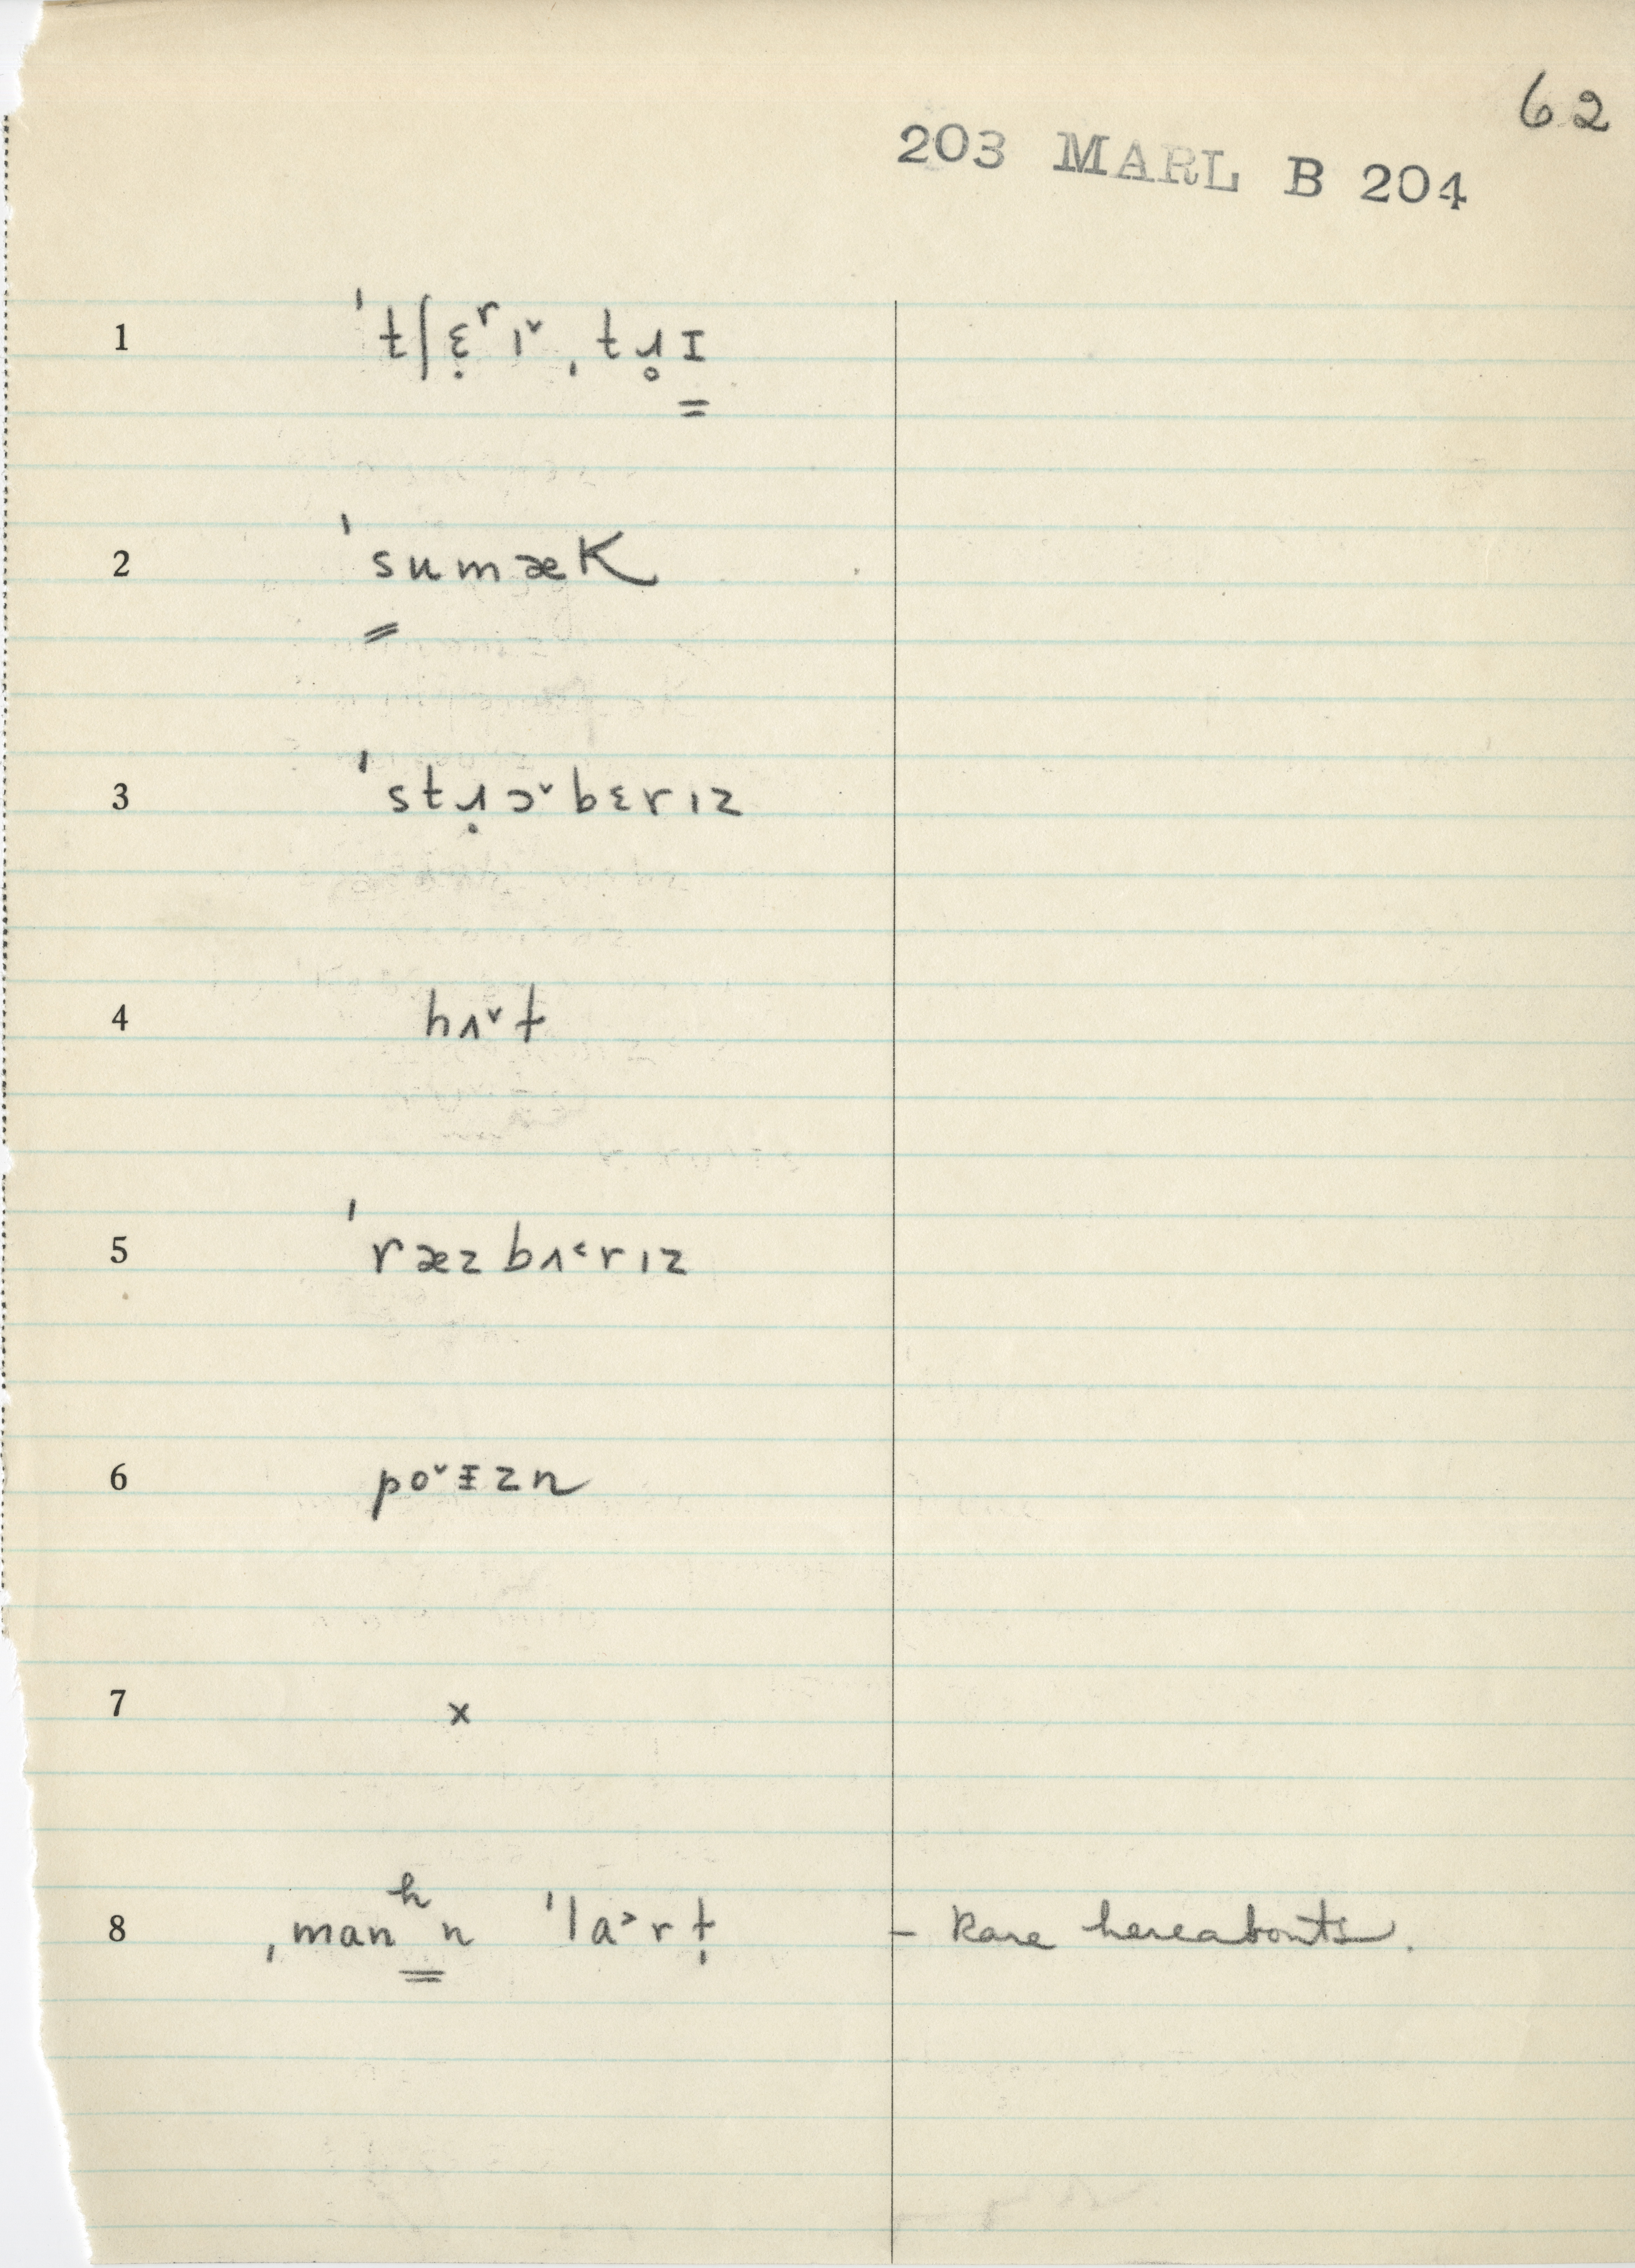 62
203 MARL B 204
1 ˈtʃɛ̣ʳɪ˅ ˌtɹ̥ɪ
2 ˈsumæK
3 ˈstɹ̣ɔ˅bɛrɪz
4 hʌ˅t
5 ˈræzbʌ˂rɪz
6 po˅ɪzn
7 x
8 ˌmanʰn ˈla˃rṭ – Rare hereabouts.